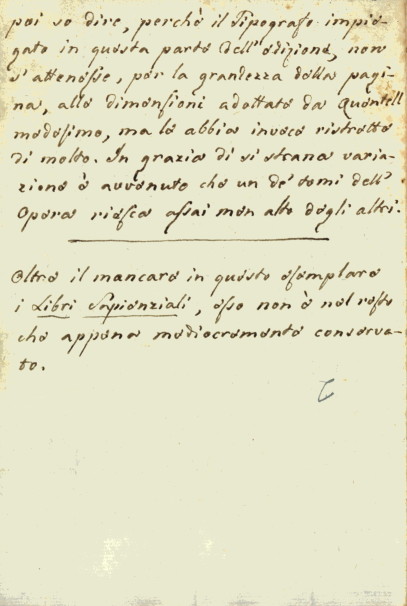 poi so dire, perchè il Tipografo impie-
gato in questa parte dell'edizione, non
s'attenesse, per la grandezza della pagi-
na, alle dimensioni adottate da Quentell
medesimo, ma le abbia invece ristrette
di molto. In grazia di si strana varia-
zione è avvenuto che un de' tomi dell'
Opera riesca assai men alto degli altri.
Oltre il mancare in questo esemplare
i Libri Sapienziali, esso non è nel resto
che appena mediocremente conserva-
to.